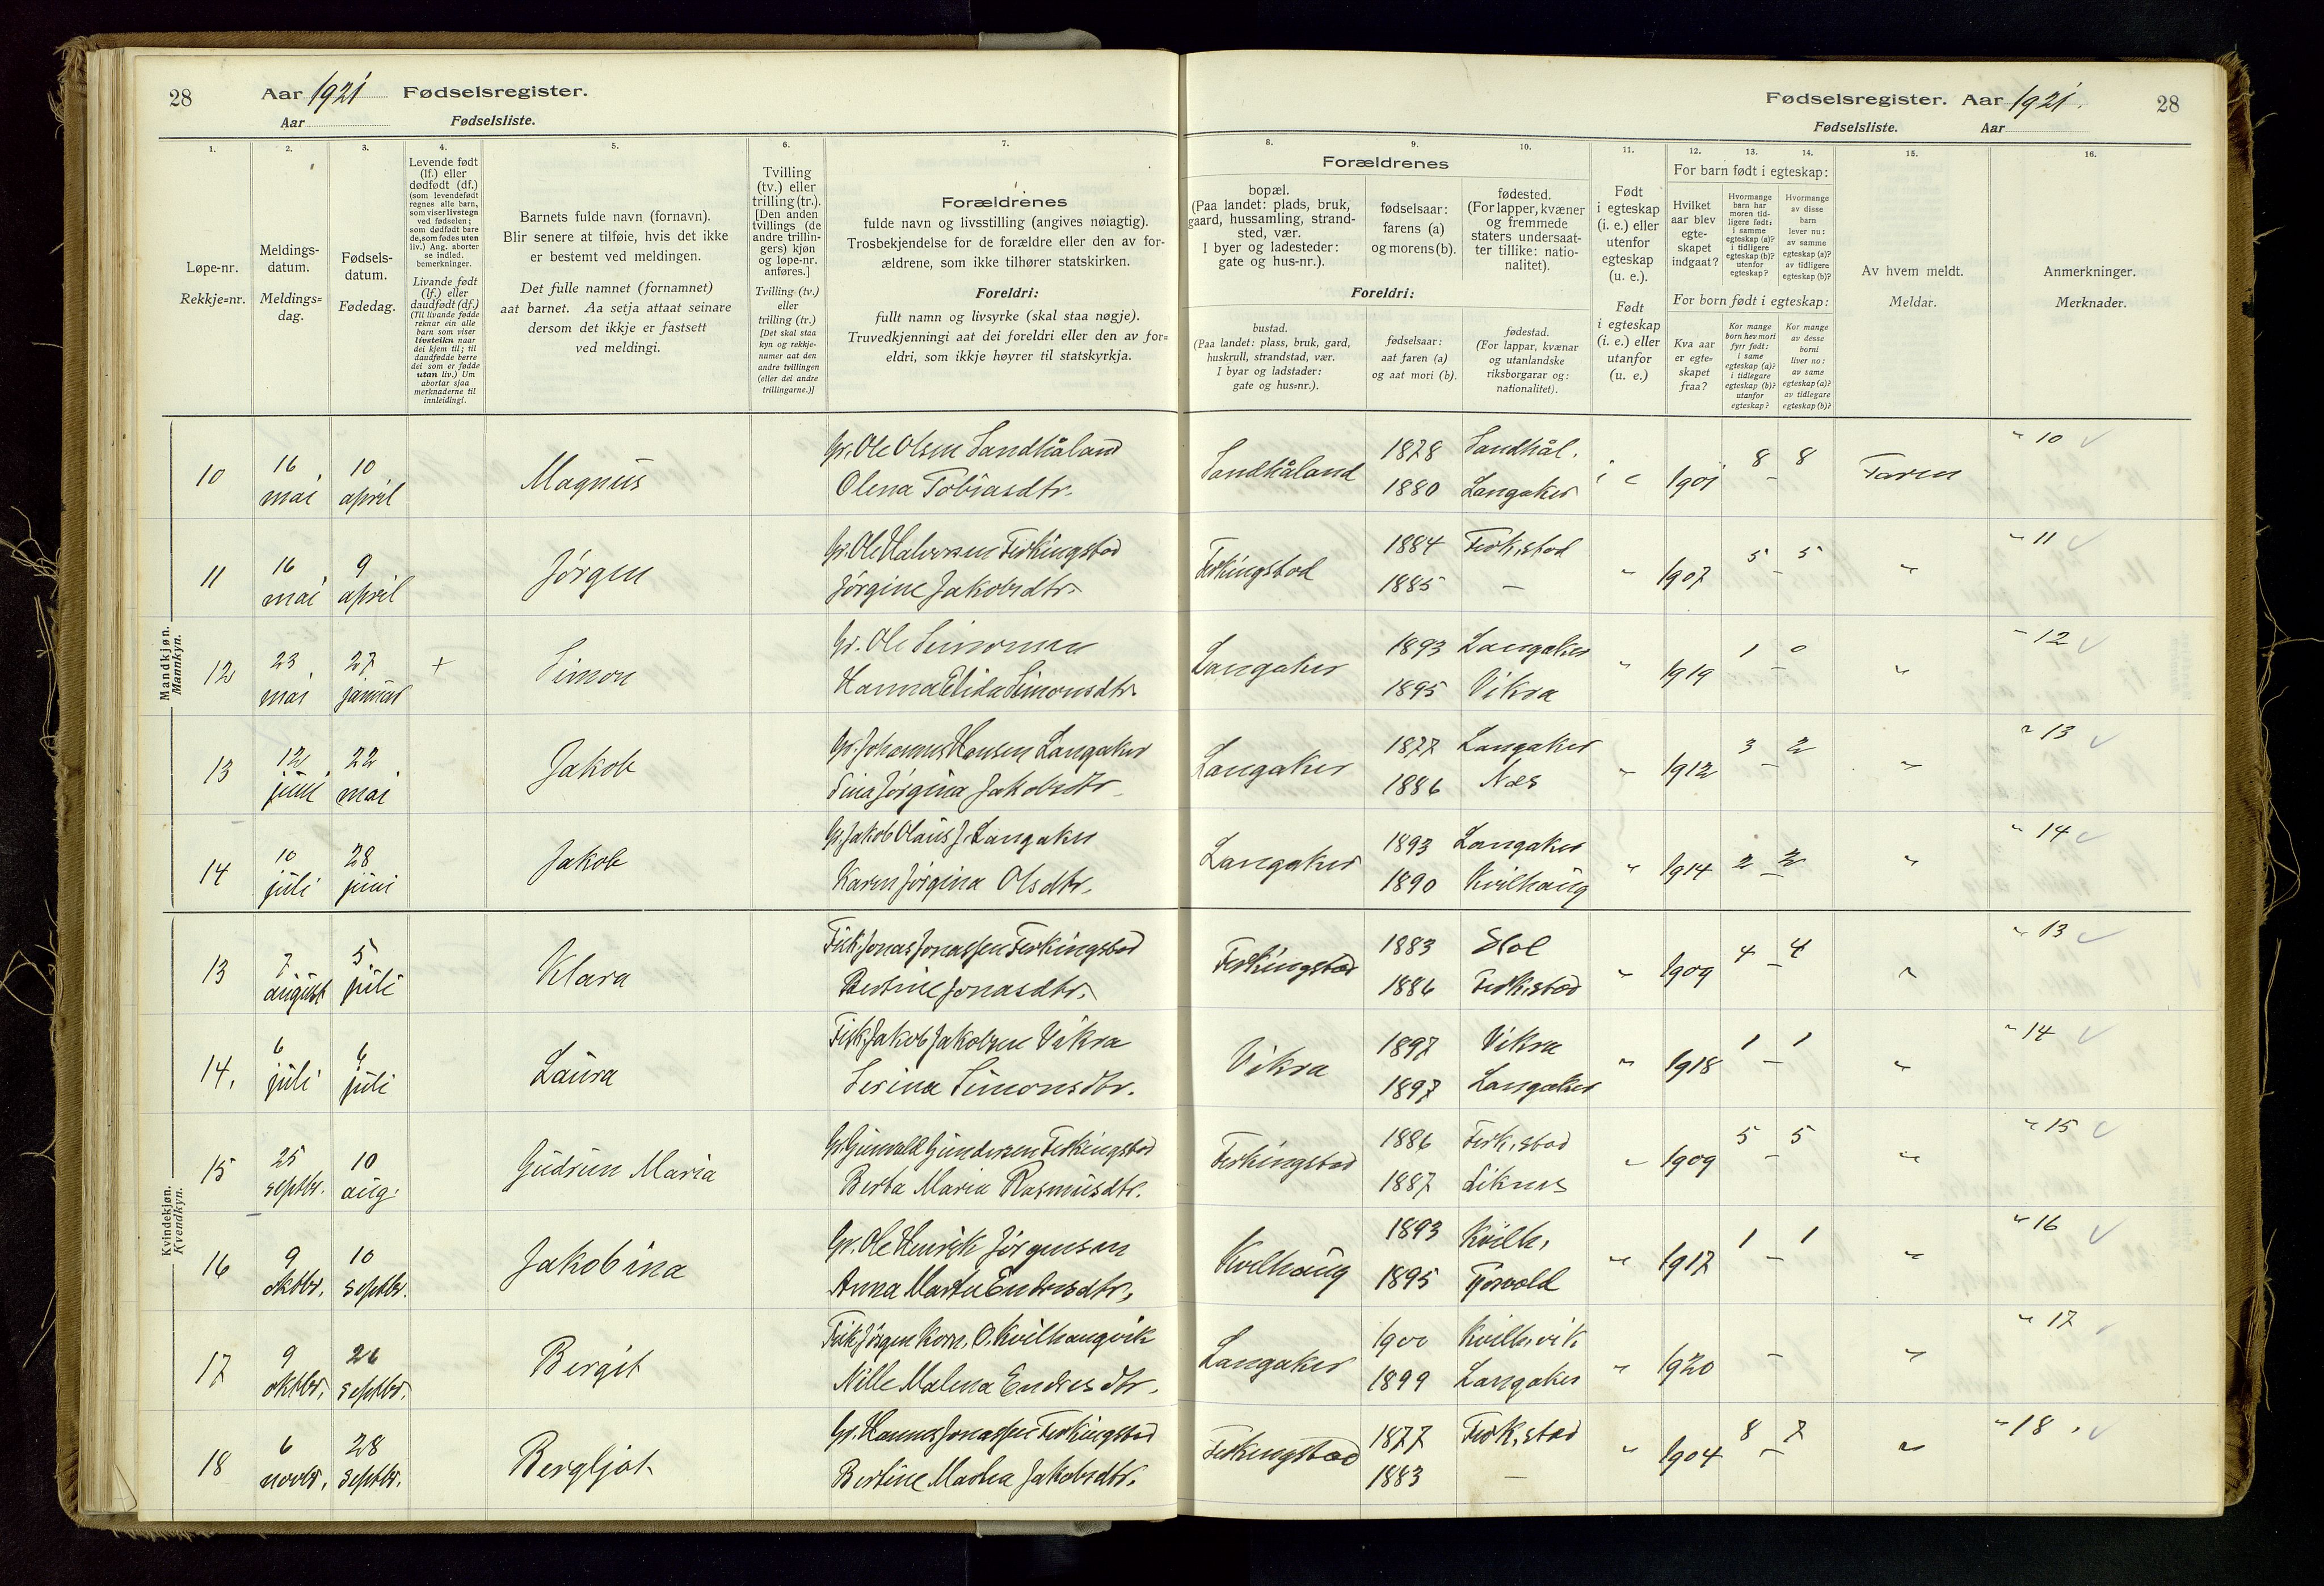 28
Aar 1921 Fødselsregister.
Aar Fødselsliste.
Fødselsregister. Aar 1921.
28
Fødselsliste. Aar
1.
Løpe-nr.
Rekkje=nr.
2.
Meldings-
datum.
Meldings=
dag.
3.
Fødsels-
datum.
Fødedag.
4.
Levende født
(lf.) eller
dødfødt (df.)
(som levendefødt
regnes alle barn,
som viser livstegn
ved fødselen;
som dødfødt bare
de, som fødes uten
liv.) Ang. aborter
se indled.
bemerkninger.
Livande født
(lf.) eller
daudfødt (df.)
(Til livande fødde
reknar ein alle
born som viser
livsteikn naar
dei kjem til; til
daudfødde berre
dei som er fødde
utan liv.) Um
abortar sjaa
merknaderne til
innleidingi.
5.
Barnets fulde navn (fornavn).
Blir senere at tilføie, hvis det ikke
er bestemt ved meldingen.
Det fulle namnet (fornamnet)
aat barnet. Aa setja attaat seinare
dersom det ikkje er fastsett
ved meldingi.
6.
Tvilling
(tv.) eller
trilling (tr.).
[Den anden
tvillings (de
andre trillin-
gers) kjøn
og løpe-nr.
anføres.]
Tvilling (tv.)
eller
trilling (tr.)
[Det skal staa
kyn og rekkje-
numer aat den
andre tvillingen
(eller dei andre
trillingarne.)]
7.
Forældrenes
fulde navn og livsstilling (angives nøiagtig).
Trosbekjendelse for de forældre eller den av for-
ældrene, som ikke tilhører statskirken.
Foreldri:
fullt namn og livsyrke (skal staa nøgje).
Truvedkjenningi aat dei foreldri eller den av for=
eldri, som ikkje høyrer til statskyrkja.
Forældrenes
8.
bopæl.
(Paa landet: plads, bruk,
gaard, hussamling, strand-
sted, vær.
I byer og ladesteder:
gate og hus-nr.).
9.
fødselsaar:
farens (a)
og morens (b).
10.
fødested.
(For lapper, kvæner
og fremmede
staters undersaat-
ter tillike: natio-
nalitet).
Foreldri:
bustad.
(Paa landet: plass, bruk, gard,
huskrull, strandstad, vær.
I byar og ladstader:
gate og hus=nr.).
fødselsaar:
aat faren (a)
og aat mori (b).
fødestad.
(For lappar, kvænar
og utanlandske
riksborgarar og:
nationalitet).
11.
Født
i egteskap
(i. e.) eller
utenfor
egteskap
(u. e.).
Født
i egteskap
(i. e.) eller
utanfor
(u. e.)
12. 13. 14.
For barn født i egteskap:
Hvilket
aar blev
egte-
skapet
indgaat?
Hvormange
barn har
moren tid-
ligere født:
i samme
egteskap (a)?
i tidligere
egteskap (b)?
utenfor
egteskap?
Hvormange
av disse
barn
lever nu:
av samme
egteskap (a)?
av tidligere
egteskap (b)?
For born født i egteskap:
Kva aar
er egte=
skapet
fraa?
Kor mange
born hev mori
fyrr født:
i same
egteskap (a)?
i tidlegare
egteskap (b)?
utanfor
egteskap?
Kor mange
av desse
borni
liver no:
av same
egteskap (a)?
av tidlegare
egteskap (b)?
15.
Av hvem meldt.
Meldar.
16.
Anmerkninger.
Merknader.
Mandkjøn.
Mannkyn.
10 16 mai 10 april Magnus Gr. Ole Olsen Sandhåland
Olena Tobiasdtr. Sandhåland 1878 Sandhål.
1880 Langaker i e 1901 8 - 8 Faren " 10
11 16 mai 9 april Jørgen Gr. Ole Halvorsen Ferkingstad
Jørgine Jakobsdtr. Ferkingstad 1884 Ferk.stad
1885 — " 1907 5 - 5 " " 11
12 23 mai 27 januar + Simon Gr. Ole Simonsen
Hanna Elida Simonsdtr. Langaker 1893 Langaker
1895 Vikra " 1919 1 - 0 " " 12
13 12 juni 22 mai Jakob Gr. Johannes Hansen Langaker
Sina Jørgina Jakobsdtr Langaker 1877 Langaker
1886 Næs " 1912 3 - 2 " " 13
14 10 juli 28 juni Jakob Gr. Jakob Olaus J. Langaker
Karen Jørgina Olsdtr. Langaker 1893 Langaker
1890 Kvilhaug " 1914 2 - 2 " " 14
Kvindekjøn.
Kvendkyn.
13 7 august 5 juli Klara Fisk. Jonas Jonassen Ferkingstad
Bertine Jonasdtr. Ferkingstad 1883 Stol
1886 Ferk.stad " 1909 4 - 4 " " 13
14. 6 juli 6 juli Laura Fisk. Jakob Jakobsen Vikra
Serina Simonsdtr. Vikra 1897 Vikra
1897 Langaker " 1918 1 - 1 " " 14
15 25 septbr. 10 aug. Gudrun Maria Gr. Gunvald Gundersen Ferkingstad
Berta Maria Rasmusdtr. Ferkingstad 1886 Ferk.stad
1887 Liknes " 1909 5 - 5 " " 15
16 9 oktbr. 10 septbr. Jakobina Gr. Ole Henrik Jørgensen
Anna Marta Endresdtr. Kvilhaug 1893 Kvilh.
1895 " 1917 1 - 1 " " 16
17 9 oktbr. 26 septbr. Bergit Fisk. Jørgen Korn. O. Kvilhaugvik
Nille Malena Endresdtr. Langaker 1900 Kvilh.vik
1899 Langaker " 1920 - " " 17
18 6 novbr. 28 septbr. Bergljot Gr. Hannes Jonassen Ferkingstad
Bertine Martea Jakobsdtr. Ferkingstad 1877 Ferk.stad
1883 — " 1904 8 - 7 " " 18